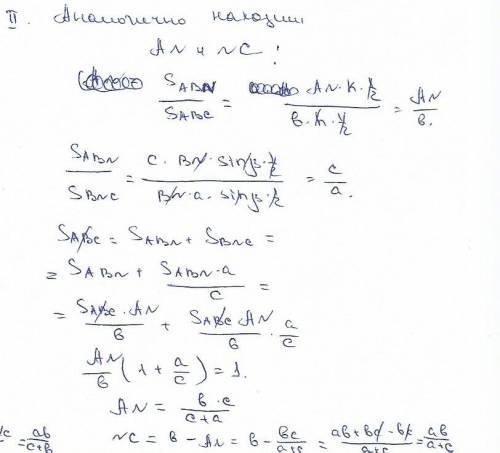 II. Аналогично находим
AN и NC:
S_ABN / S_ABC = AN·h·½ / в·h·½ = AN / в.
S_ABN / S_BNC = c·BN·sinβ·½ / BN·a·sinβ·½ = c / a.
S_ABC = S_ABN + S_BNC =
= S_ABN + S_ABN·a / c =
= S_ABC·AN / в + S_ABC·AN / в · a / c
AN / в (1 + a / c) = 1.
AN = в·c / c+a
c = aв / c+в NC = в - AN = в - вc / a+c = aв + вc - вc / a+c = aв / a+c